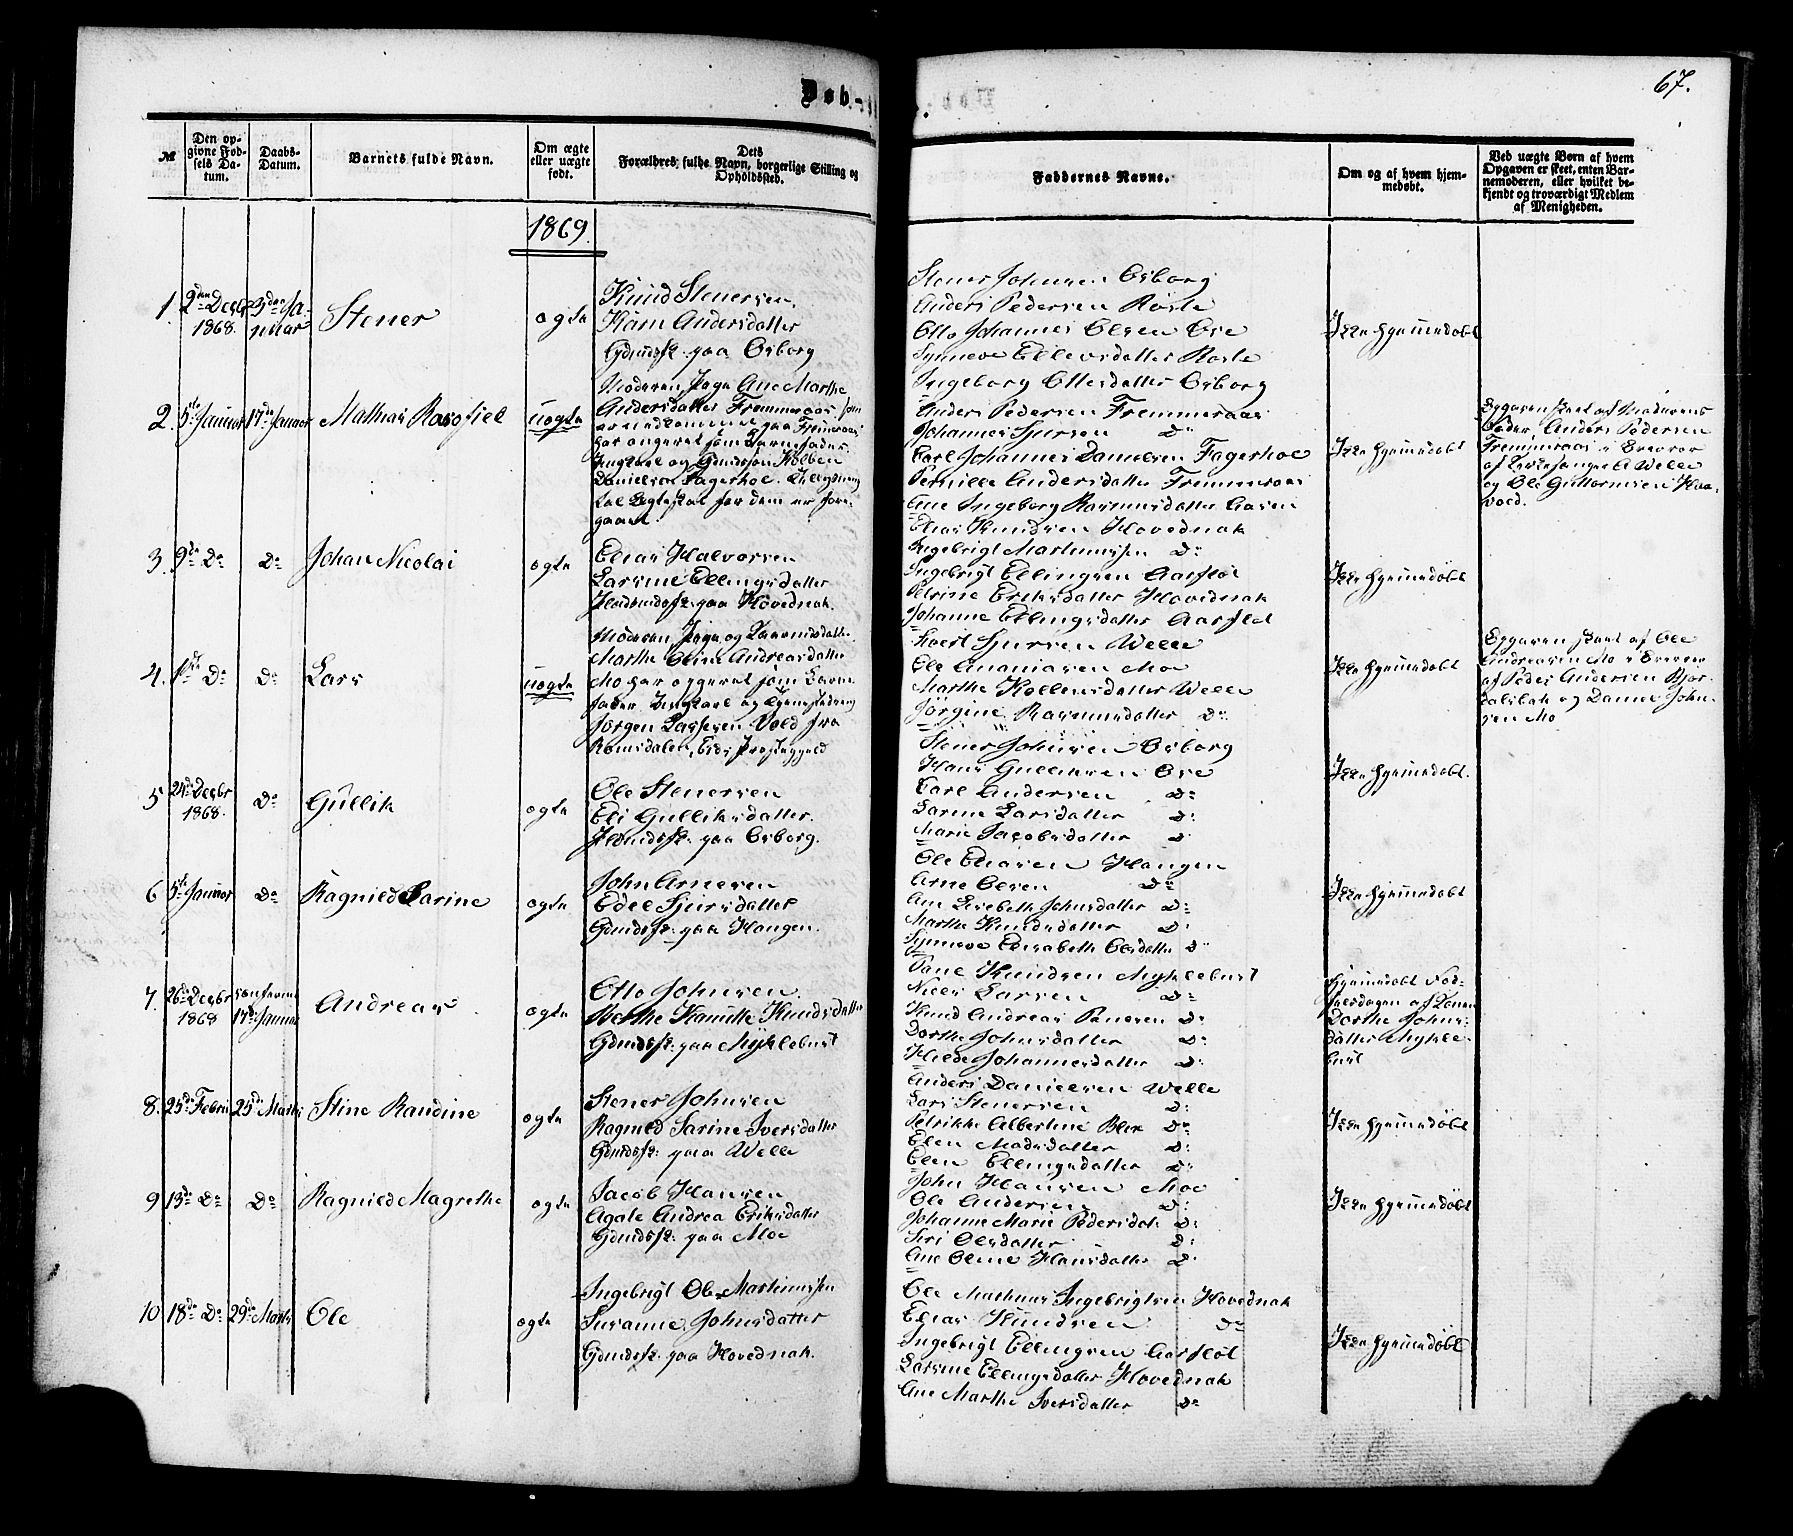 Døb.-
67.
№
Den opgivne Fødsels Datum.
Daabs-Datum.
Barnets fulde Navn.
Om ægte eller uægte født.
Dets Forældres fulde Navn, borgerlige Stilling og Opholdssted.
Faddernes Navne.
Om og af hvem hjemmedøbt.
Ved uægte Børn af hvem Opgaven er skeet, enten Barnemoderen, eller hvilket bekjendt og troværdigt Medlem af Menigheden.
1869.
1. 2den Decbr 1868. 3die Januar Stener ægte
Knud Stenersen,
Karn Andersdatter
Gdmdsf. paa Osborg
Stener Johnsen Osborg
Anders Pedersen Røste
Otto Johannes Olsen Øie
Synneve Ellevsdatter Røste
Ingeborg Ottersdatter Osborg
Ikke hjemmedøbt
2. 5te Januar 17de Januar Mathias uægte
Moderen Pige Ane Marthe
Andersdatter Fremmeraas
Danielsen Fagerhol
Anders Pedersen Fremmeraas
Johannes Sjursen Do
Carl Johannes Danielsen Fagerhol
Pernille Andersdatter Fremmeraas
Ane Ingeborg Rasmusdatter Aasen
Ikke hjemmedøbt
Opgaven skeet af Moderens
Fader Anders Pedersen
Fremmeraas
3. 9de Do Do Johan Nicolai ægte
Elias Halvorsen
Larsine Ellingsdatter
paa Hovednak.
Elias Knudsen Hovednak
Ingebrigt Martinussen Do
Ingebrigt Ellingsen Aarflot
Petrine Eriksdatter Hovednak
Johanne Ellingsdatter Aarflot
Ikke hjemmedøbt
4. 1ste Do Do Lars uægte
Marthe Oline Andreasdatter
Mo har opgivet som Barne
fader
Jørgen Larssen Vold fra
Romsdalen,
Sjursen Welle
Ole Ananiasen Mo
Marthe Welle
Jørgine Rasmusdatter Do
Ikke hjemmedøbt
Opgaven skeet af Ole
Andreasen Mo
af Peder Andersen Bjør-
dalsbak og Daniel John-
sen Mo
5 24de Decbr 1868. Do Gullik ægte
Ole Stenersen
Eli Gulliksdatter.
paa Osborg.
Stener Johnsen Osborg
Hans Gulliksen Øie
Carl Andersen Do
Larine Larsdatter Do
Marie Jacobsdatter Do
Ikke hjemmedøbt.
6 5te Januar Do Ragnild Sarine ægte
John Arnesen
Edel Sjursdatter
Gdmdsf. paa Haugen.
Ole Eliasen Haugen
Arne Olsen Do
Ane Lisebeth Johnsdatter Do
Marthe Knudsdatter Do
Synneve Elisabeth Olsdatter Do
Ikke hjemmedøbt
7. 26de Decbr 1868 17de Januar Andreas ægte
Otto Johnsen.
Berthe Kamille Knudsdatter
Gdmdsf. paa Myklebust
Paul Knudsen Myklebust
Niels Larsen Do
Knud Andreas Paulsen Do
Dorthe Johnsdatter Do
Hilde Johannesdatter Do
Hjemmedøbt Fød-
selsdagen af Konen
Dorthe Johns-
datter Mykle-
bust
8. 25de Febru 25de Marts Stine Raudine ægte
Stener Johnsen
Ragnild Sarine Iversdatter
Gdmdsf. paa Welle
Anders Danielsen Welle
Lars Stenersen Do
Petrikke Albertine Blix Do
Elen Madsdatter Do
Elen Ellingsdatter Do
Ikke hjemmedøbt
9 13de Do Do Ragnild Magrethe ægte
Jacob Hansen
Agate Andrea Eriksdatter
Gdmdsf. paa Moe
John Hansen Moe
Ole Andersen Do
Johanne Marie Pedersdatr Do
Siri Olsdatter Do
Ane Oline Hansdatter Do
Ikke hjemmedøbt
10 18de Do 29de Marts Ole ægte
Ingebrigt Ole Martinussen
Susanne Johnsdatter
Gdmdsf. paa Hovednak.
Ole Mathias Ingebrigtsen Hovednak
Elias Knudsen Do
Ingebrigt Ellingsen Aarflot
Larsine Ellingsdatter Hovednak
Ane Marthe Iversdatter Do
Ikke hjemmedøbt